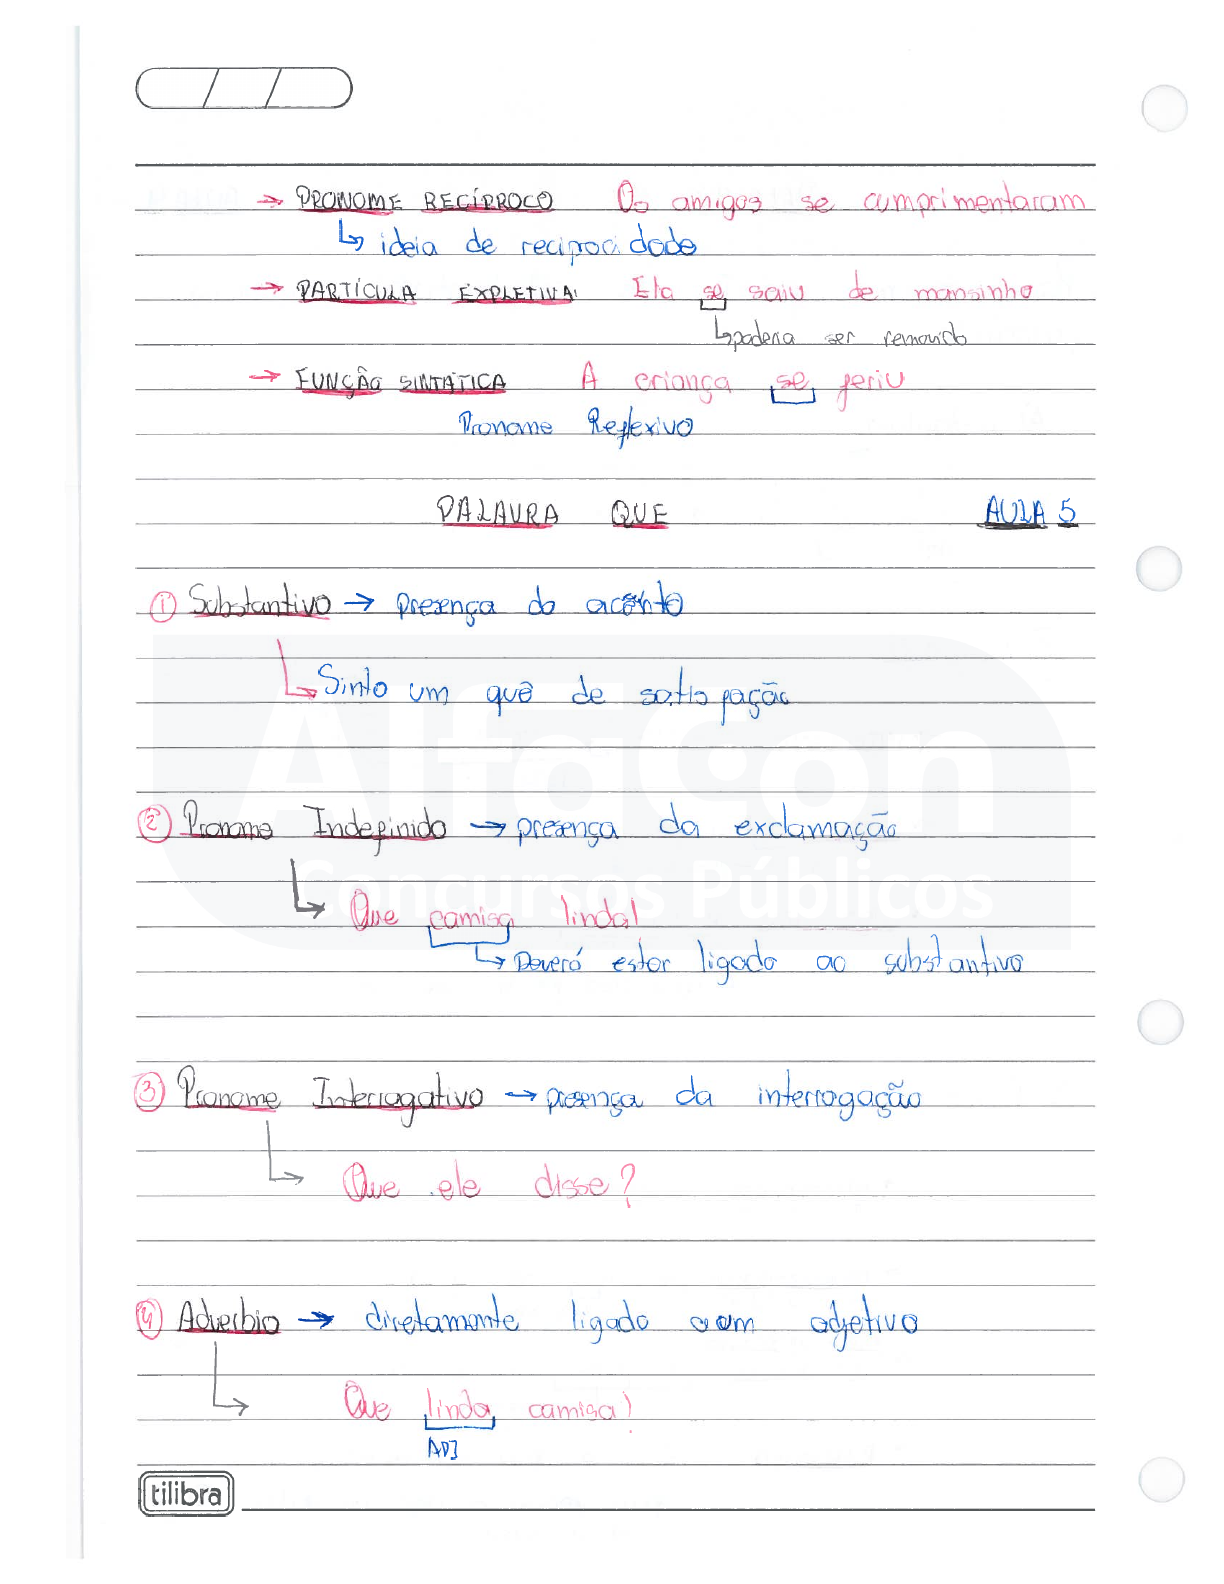 → PRONOME RECÍPROCO Os amigos se cumprimentaram
↳ ideia de reciprocidade
→ PARTÍCULA EXPLETIVA: Ela se saiu de mansinho
↳ poderia ser removido
→ FUNÇÃO SINTÁTICA A criança se feriu
Pronome Reflexivo
PALAVRA QUE AULA 5
① Substantivo → presença do acento
↳ Sinto um quê de satisfação
AlfaCon
② Pronome Indefinido → presença da exclamação
Concursos Públicos
↳ Que camisa linda!
↳ Deverá estar ligado ao substantivo
③ Pronome Interrogativo → presença da interrogação
↳ Que ele disse?
④ Advérbio → diretamente ligado com adjetivo
↳ Que linda camisa!
ADJ
tilibra